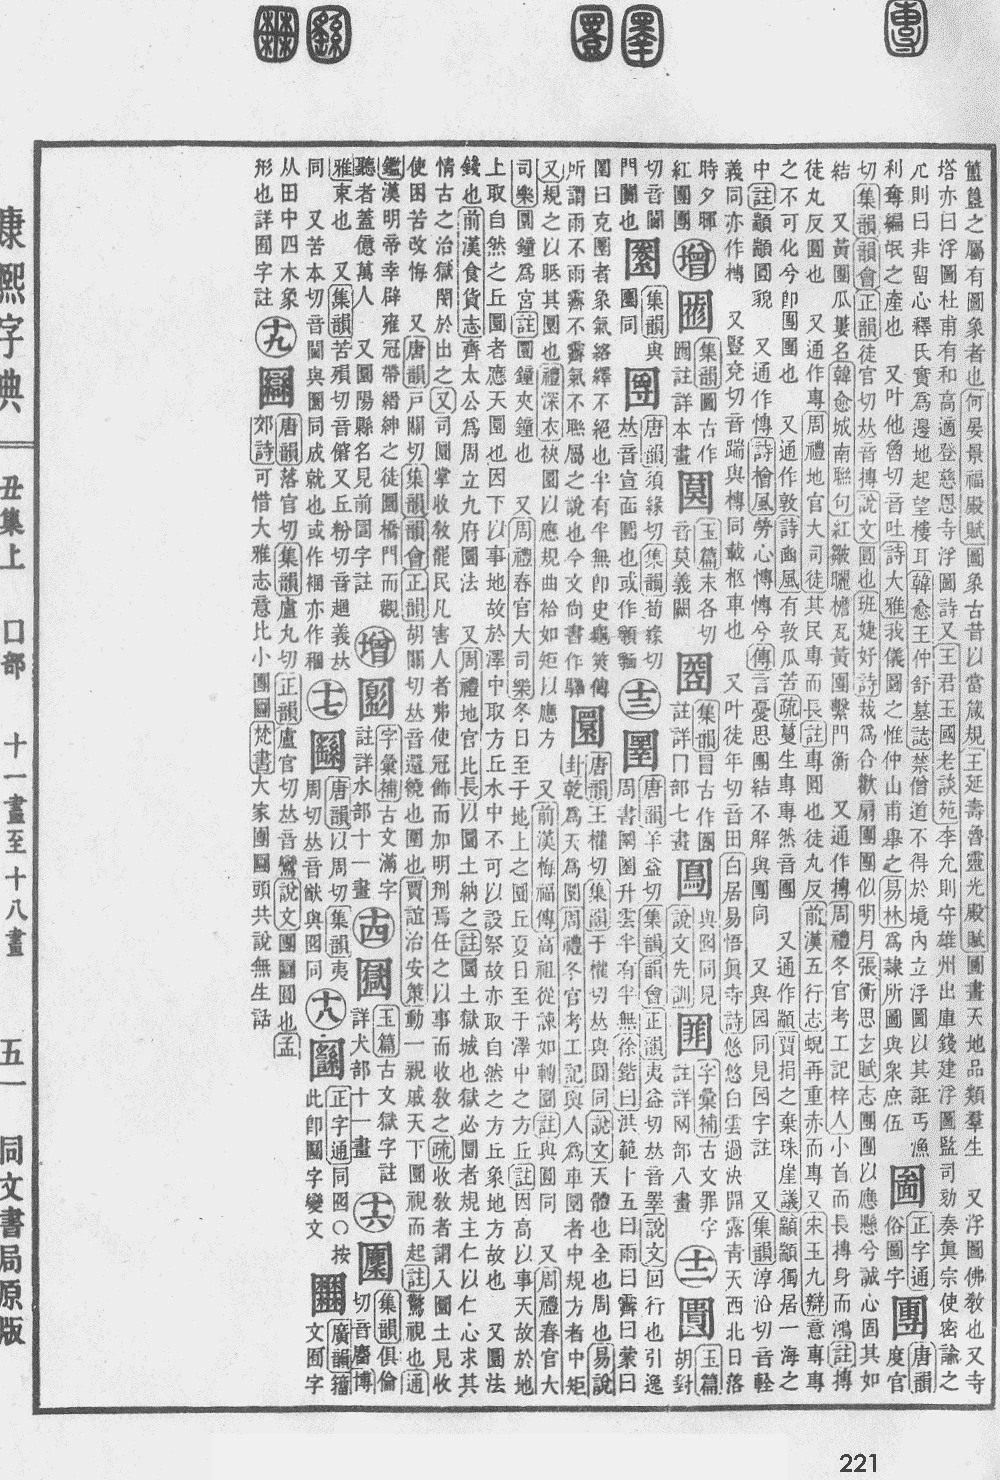 簠簋之屬有圖象者也何晏景福殿賦圖象古昔以當箴規王延壽魯靈光殿賦圖畫天地品類羣生 又浮圖佛敎也又寺
塔亦曰浮圖杜甫有和高適登慈恩寺浮圖詩又王君玉國老談苑李允則守雄州出庫錢建浮圖監司劾奏眞宗使密諭之
允則曰非留心釋氏實爲邊地起望樓耳韓愈王仲舒墓誌禁僧道不得於境內立浮圖以其誑丐漁
利奪編氓之產也 又叶他魯切音吐詩大雅我儀圖之惟仲山甫舉之易林爲隸所圖與衆庶伍
圗正字通俗圖字
團唐韻度官
切集韻韻會正韻徒官切𠀤音摶說文圓也班婕妤詩裁爲合歡扇團團似明月張衡思玄賦志團團以應懸兮誠心固其如
結 又黃團瓜蔞名韓愈城南聯句紅皺曬檐瓦黃團繫門衡 又通作摶周禮冬官考工記梓人小首而長摶身而鴻註摶
徒丸反圓也 又通作專周禮地官大司徒其民專而長註專圓也徒丸反前漢五行志蜺再重赤而專又宋玉九辯意專專
之不可化兮卽團團也 又通作敦詩豳風有敦瓜苦疏蔓生專專然音團 又通作顓賈捐之棄珠崖議顓顓獨居一海之
中註顓顓圜貌 又通作慱詩檜風勞心慱慱兮傳言憂思團結不解與團同 又與园同見园字註 又集韻淳沿切音輇
義同亦作槫 又豎兗切音踹與槫同載柩車也 又叶徒年切音田白居易悟眞寺詩悠悠白雲過決開露靑天西北日落
時夕暉紅團團
增
集韻圖古作圖註詳本畫
玉篇末各切音莫義闕
集韻冒古作圂註詳冂部七畫
與囮同見說文先訓
字彙補古文罪字註詳网部八畫
十二
圚玉篇胡對
切音闠門闠也
集韻與團同
唐韻須緣切集韻荀緣切𠀤音宣面圓也或作𩔊
十三
圛唐韻羊益切集韻韻會正韻夷益切𠀤音睪說文回行也引逸
周書圛圛升雲半有半無徐鍇曰洪範十五曰雨曰霽曰蒙曰
圛曰克圛者象氣絡繹不絕也半有半無卽史龜筴傳
所謂雨不雨霽不霽氣不聯屬之說也今文尙書作驛
圜唐韻王權切集韻于權切𠀤與圓同說文天體也全也周也易說
卦乾爲天爲圜周禮冬官考工記輿人爲車圜者中規方者中矩
又規之以眡其圜也禮深衣袂圜以應規曲袷如矩以應方 又前漢梅福傳高祖從諫如轉圜註與圓同 又周禮春官大
司樂圜鐘爲宮註圜鐘夾鐘也 又周禮春官大司樂冬日至于地上之圜丘夏日至于澤中之方丘註因高以事天故於地
上取自然之丘圜者應天圜也因下以事地故於澤中取方丘水中不可以設祭故亦取自然之方丘象地方故也 又圜法
錢也前漢食貨志齊太公爲周立九府圜法 又周禮地官比長以圜土納之註圜土獄城也獄必圜者規主仁以仁心求其
情古之治獄閔於出之又司圜掌收敎罷民凡害人者弗使冠飾而加明刑焉任之以事而收敎之疏收敎者謂入圜土見收
使困苦改悔 又唐韻戸關切集韻韻會正韻胡關切𠀤音還繞也圍也賈誼治安策動一親戚天下圜視而起註驚視也通
鑑漢明帝幸辟雍冠帶縉紳之徒圜橋門而觀
聽者蓋億萬人 又圜陽縣名見前圁字註
增
字彙補古文滿字註詳水部十一畫
十四
玉篇古文獄字註詳犬部十一畫
十六
集韻俱倫切音麏博
雅束也 又集韻苦殞切音䪺又丘粉切音趣義𠀤
同 又苦本切音閫與圂同成就也或作梱亦作稇
十七
唐韻以周切集韻夷周切𠀤音猷與囮同
十八
正字通同囮○按此卽圝字變文
廣韻籀文囿字
从田中四木象
形也詳囿字註
十九
圞唐韻落官切集韻盧丸切正韻盧官切𠀤音鸞說文團圞圓也孟
郊詩可惜大雅志意比小團圞梵書大家團圞頭共說無生話
康熙字典
丑集上 口部 十一畫至十八畫
五一
同文書局原版
221